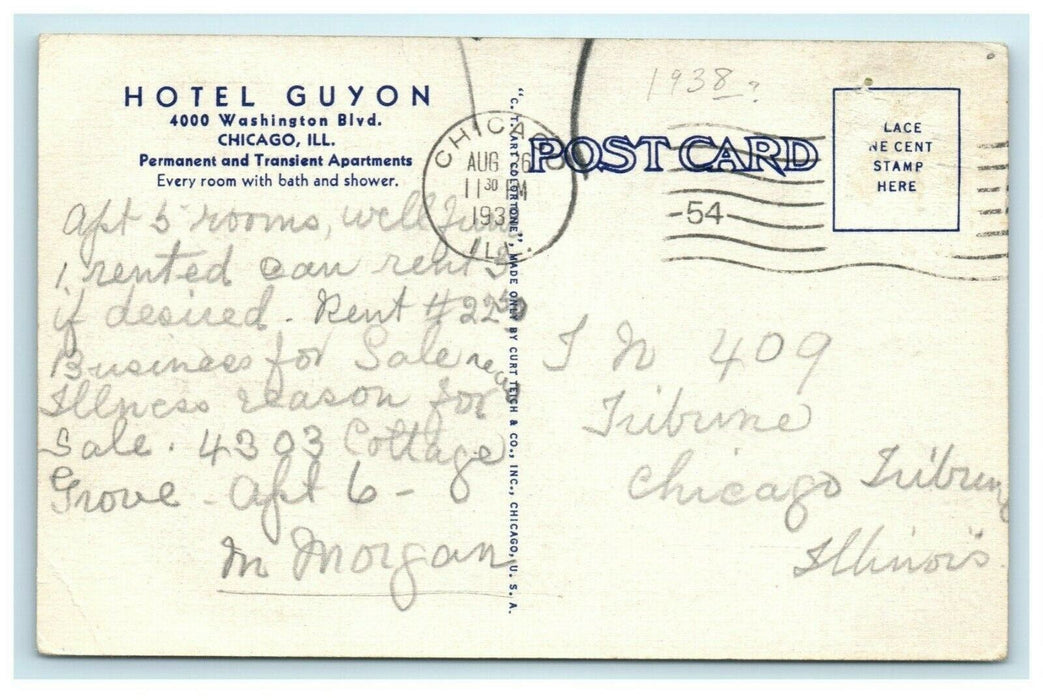 HOTEL GUYON
4000 Washington Blvd.
CHICAGO, ILL.
Permanent and Transient Apartments
Every room with bath and shower.
Apt 5 rooms, well
1 rented can rent 3
if desired. Rent #22.50
Business for Sale
Illness reason for
Sale. 4303 Cottage
Grove - Apt 6 -
M Morgan
"C. T. ART COLORTONE", MADE ONLY BY CURT TEICH & CO., INC., CHICAGO, U. S. A.
CHICAGO
AUG 26
11 30 PM
193
ILL.
1938?
POST CARD
-54-
LACE
NE CENT
STAMP
HERE
409
Tribune
Chicago Tribune
Illinois